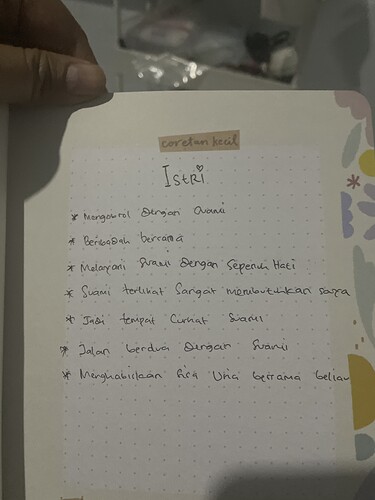 coretan kecil
Istri
* Mengobrol Dengan Suami
* Beribadah bersama
* Melayani Suami Dengan Sepenuh Hati
* Suami terlihat Sangat membutuhkan saya
* Jadi tempat Curhat Suami
* Jalan berdua Dengan Suami
* Menghabiskan Sisa Usia bersama beliau